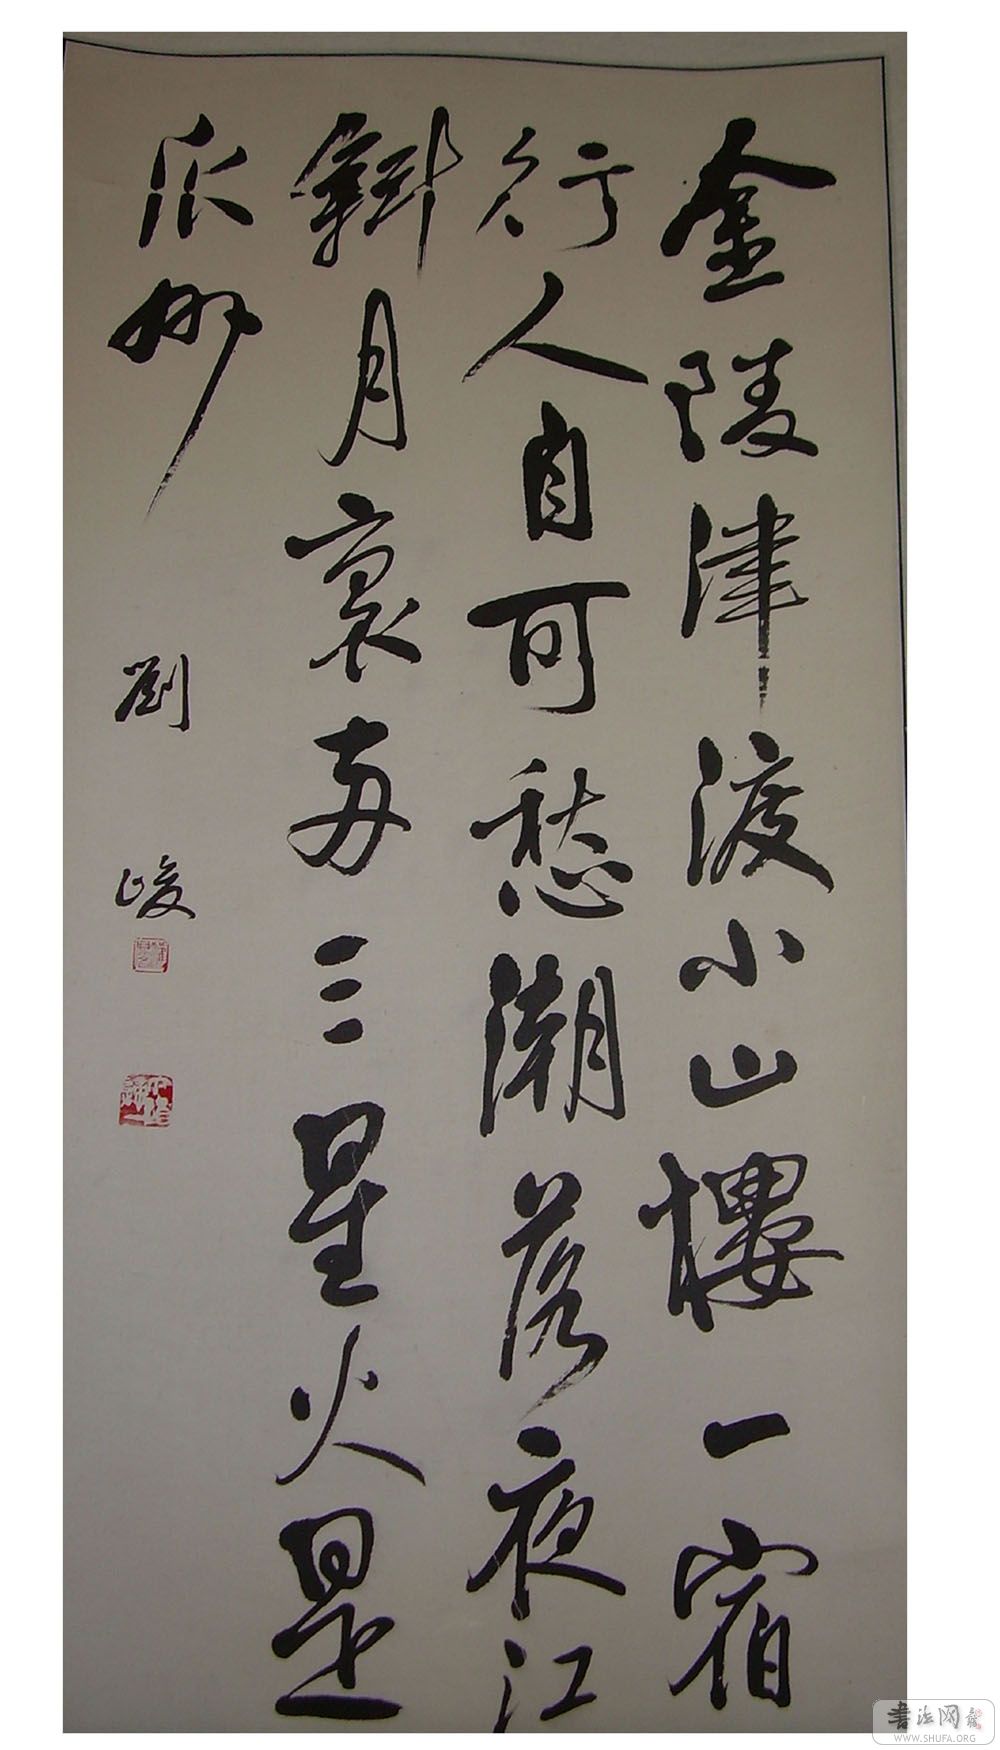 金陵津渡小山樓一宿
行人自可愁潮落夜江
斜月裏兩三星火是
瓜州
劉峻
書法网
WWW.SHUFA.ORG